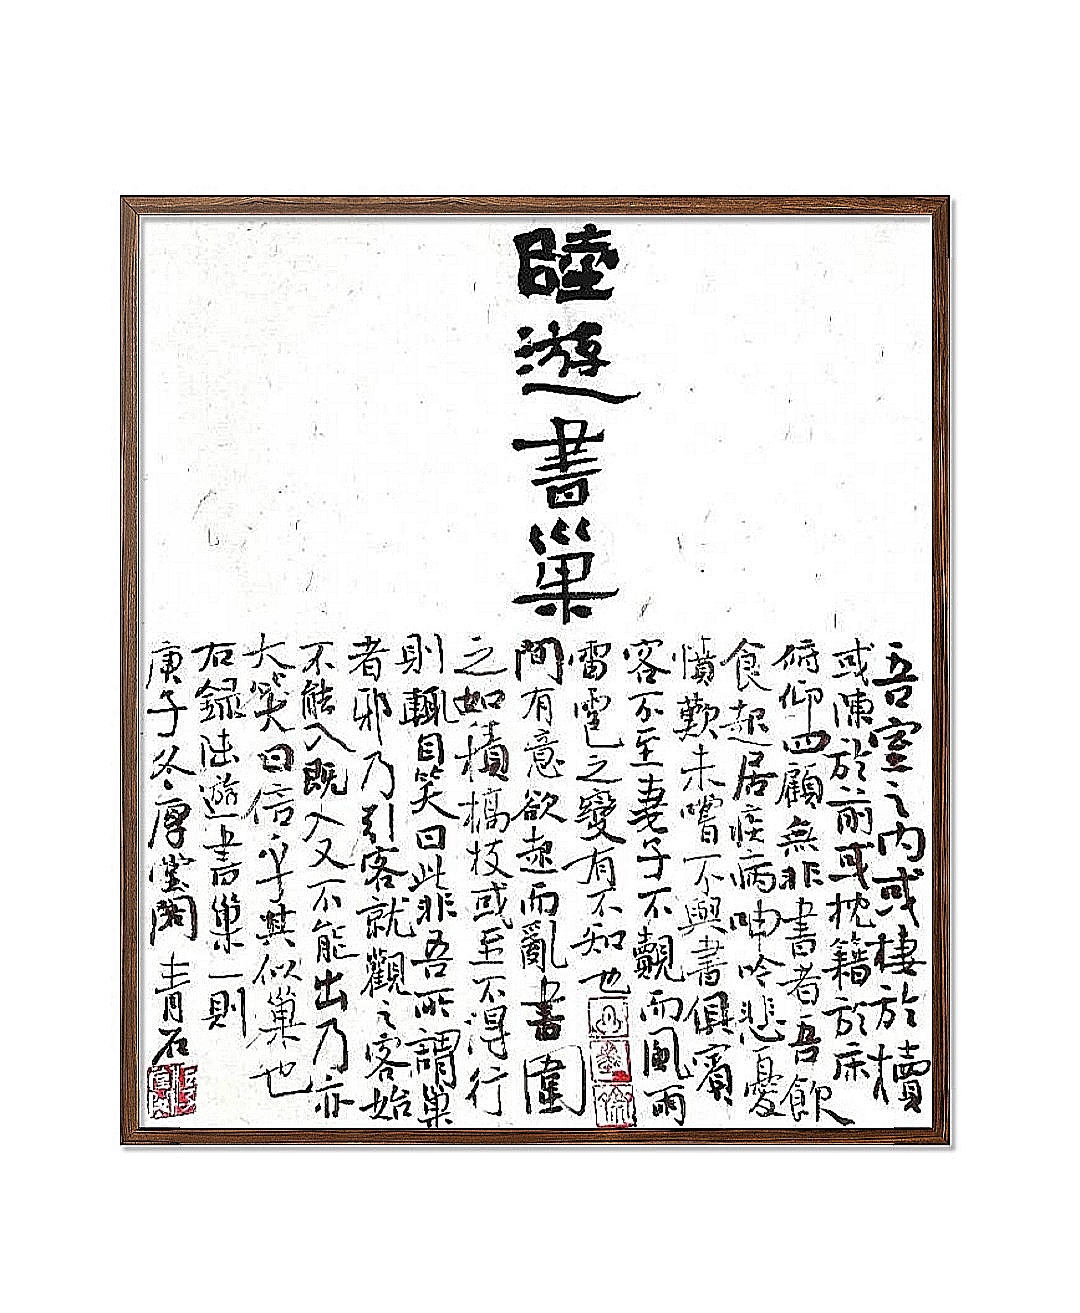 陸遊書巢
吾室之内或棲於櫝
或陳於前或枕籍於床
俯仰四顧無非書者吾飲
食起居疾病呻吟悲憂
憤歎未嚐不與書俱賓
客不至妻子不覿而風雨
雷雹之變有不知也
間有意欲起而亂書圍
之如積槁枝或至不得行
則輒自笑曰此非吾所謂巢
者邪乃引客就觀之客始
不能入既入又不能出乃亦
大笑曰信乎其似巢也
右録陸遊書巢一則
庚子冬厚堂閣 青石